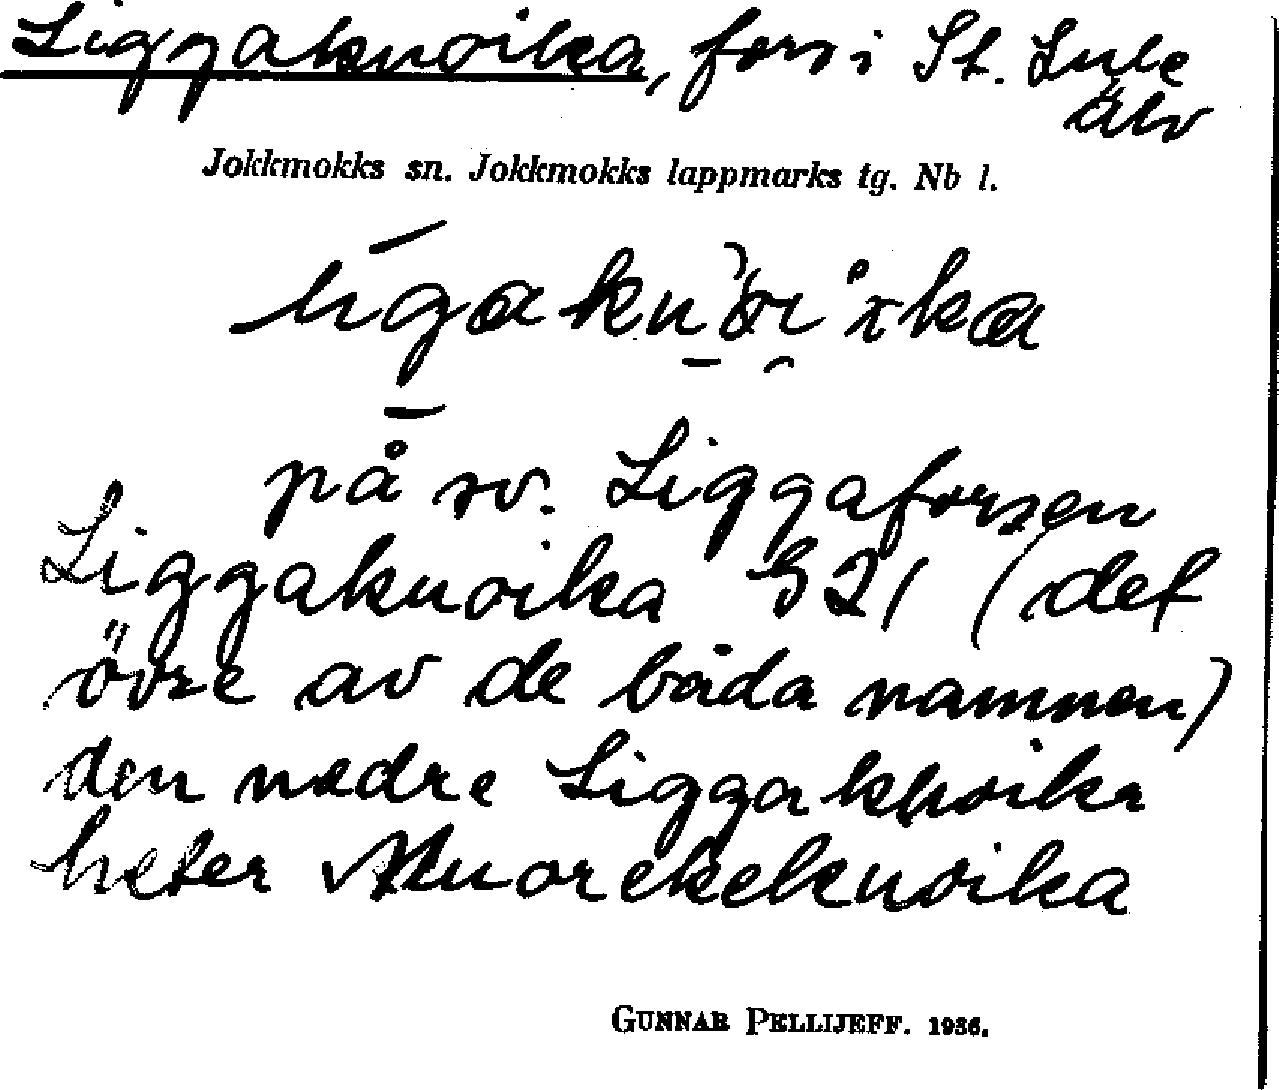 Liggakuoika, fors i St. Lule
älv
Jokkmokks sn. Jokkmokks lappmarks tg. Nb l.
på sv. Liggaforsen
Liggakuoika 521 (det
övre av de båda namnen)
den nedre Liggakuoika
heter Muorekekuoika
GUNNAR PELLIJEFF. 1936.